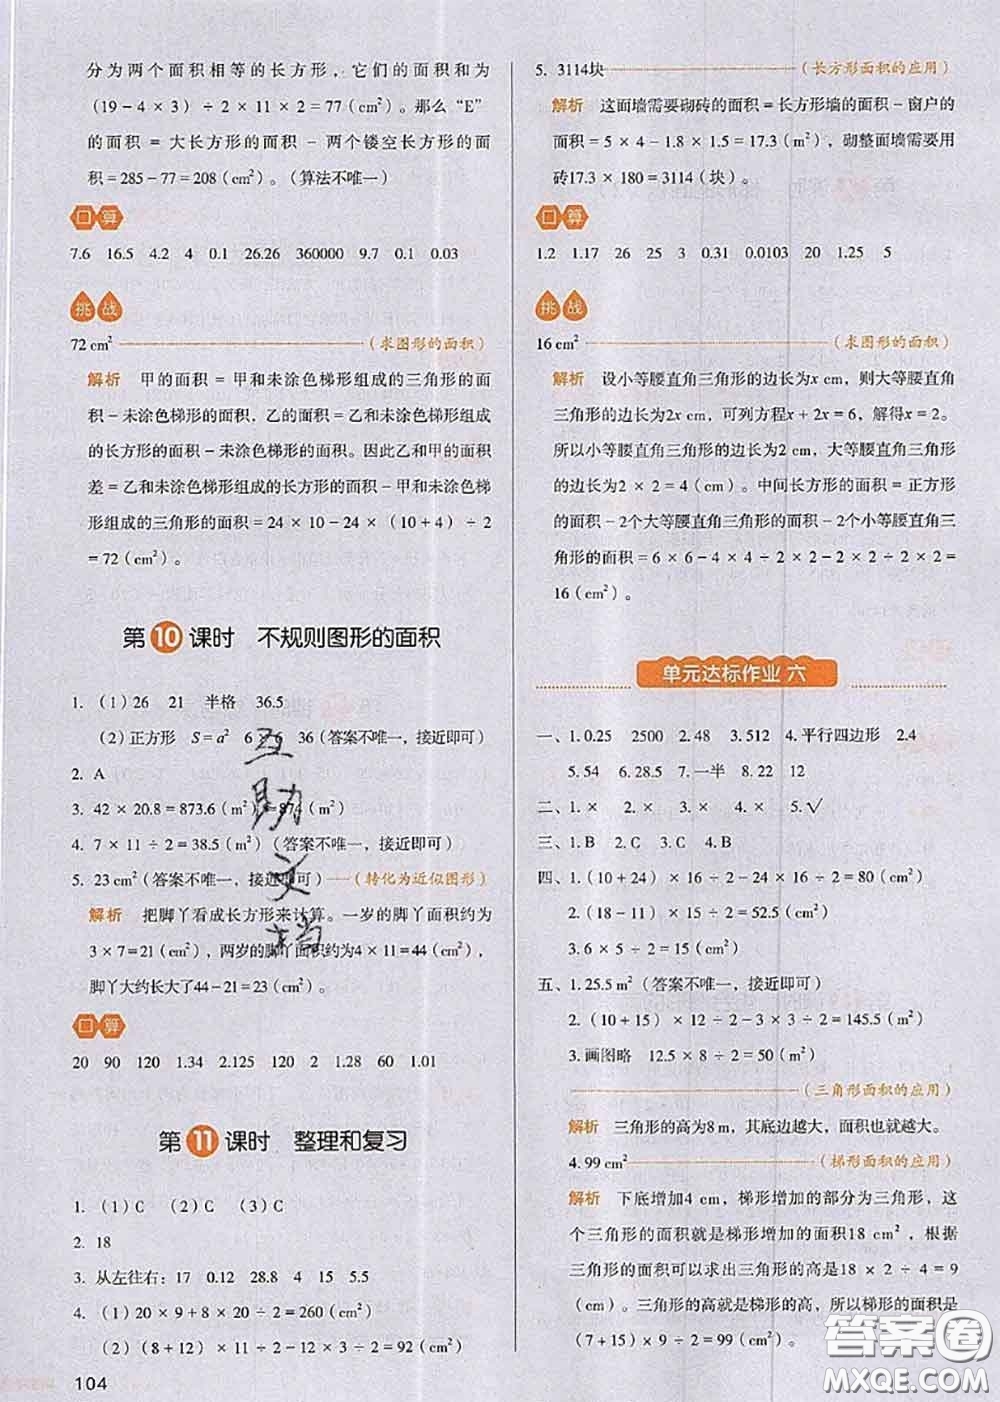 分为两个面积相等的长方形，它们的面积和为
（19－4×3）÷2×11×2＝77（cm²）。那么“E”
的面积＝大长方形的面积－两个镂空长方形的面
积＝285－77＝208（cm²）。（算法不唯一）
口算
7.6 16.5 4.2 4 0.1 26.26 360000 9.7 0.1 0.03
挑战
72 cm²（求图形的面积）
解析 甲的面积＝甲和未涂色梯形组成的三角形的面
积－未涂色梯形的面积，乙的面积＝乙和未涂色梯形组成
的长方形的面积－未涂色梯形的面积。因此乙和甲的面积
差＝乙和未涂色梯形组成的长方形的面积－甲和未涂色梯
形组成的三角形的面积＝24×10－24×（10＋4）÷2
＝72（cm²）。
第10课时 不规则图形的面积
1.（1）26 21 半格 36.5
（2）正方形 S＝a² 6×6 36（答案不唯一，接近即可）
2. A
3. 42×20.8＝873.6（m²）＝874（m²）
4. 7×11÷2＝38.5（m²）（答案不唯一，接近即可）
5. 23 cm²（答案不唯一，接近即可）（转化为近似图形）
解析 把脚丫看成长方形来计算。一岁的脚丫面积约为
3×7＝21（cm²），两岁的脚丫面积约为4×11＝44（cm²），
脚丫大约长大了44－21＝23（cm²）。
口算
20 90 120 1.34 2.125 120 2 1.28 60 1.01
第11课时 整理和复习
1.（1）C （2）C （3）C
2. 18
3. 从左往右：17 0.12 28.8 4 15 5.5
4.（1）20×9＋8×20÷2＝260（cm²）
（2）（8＋12）×11÷2－12×4÷2＝86（cm²）
104
5. 3114块（长方形面积的应用）
解析 这面墙需要砌砖的面积＝长方形墙的面积－窗户的
面积＝5×4－1.8×1.5＝17.3（m²），砌整面墙需要用
砖17.3×180＝3114（块）。
口算
1.2 1.17 26 25 3 0.31 0.0103 20 1.25 5
挑战
16 cm²（求图形的面积）
解析 设小等腰直角三角形的边长为x cm，则大等腰直角
三角形的边长为2x cm，可列方程x＋2x＝6，解得x＝2。
所以小等腰直角三角形的边长为2 cm，大等腰直角三角形的边长为
2×2＝4（cm）。中间长方形的面积＝正方形
的面积－2个大等腰直角三角形的面积－2个小等腰直角三
角形的面积＝6×6－4×4÷2×2－2×2÷2×2＝
16（cm²）。
单元达标作业 六
一、1.0.25 2500 2.48 3.512 4.平行四边形 2.4
5.54 6.28.5 7.一半 8.22 12
二、1.× 2.× 3.× 4.× 5.√
三、1.B 2.C 3.C 4.B
四、1.（10＋24）×16÷2－24×16÷2＝80（cm²）
2.（18－11）×15÷2＝52.5（cm²）
3.6×5÷2＝15（cm²）
五、1.25.5 m²（答案不唯一，接近即可）
2.（10＋15）×12÷2－3×3÷2＝145.5（m²）
3.画图略 12.5×8÷2＝50（m²）
（三角形面积的应用）
解析 三角形的高为8 m，其底边越大，面积也就越大。
4.99 cm²（梯形面积的应用）
解析 下底增加4 cm，梯形增加的部分为三角形，这
个三角形的面积就是梯形增加的面积18 cm²，根据
三角形的面积可以求出三角形的高为18×2÷4＝9
（cm）。三角形的高就是梯形的高，所以梯形的面积是
（7＋15）×9÷2＝99（cm²）。
互助文档
答案圈
MXQE.COM